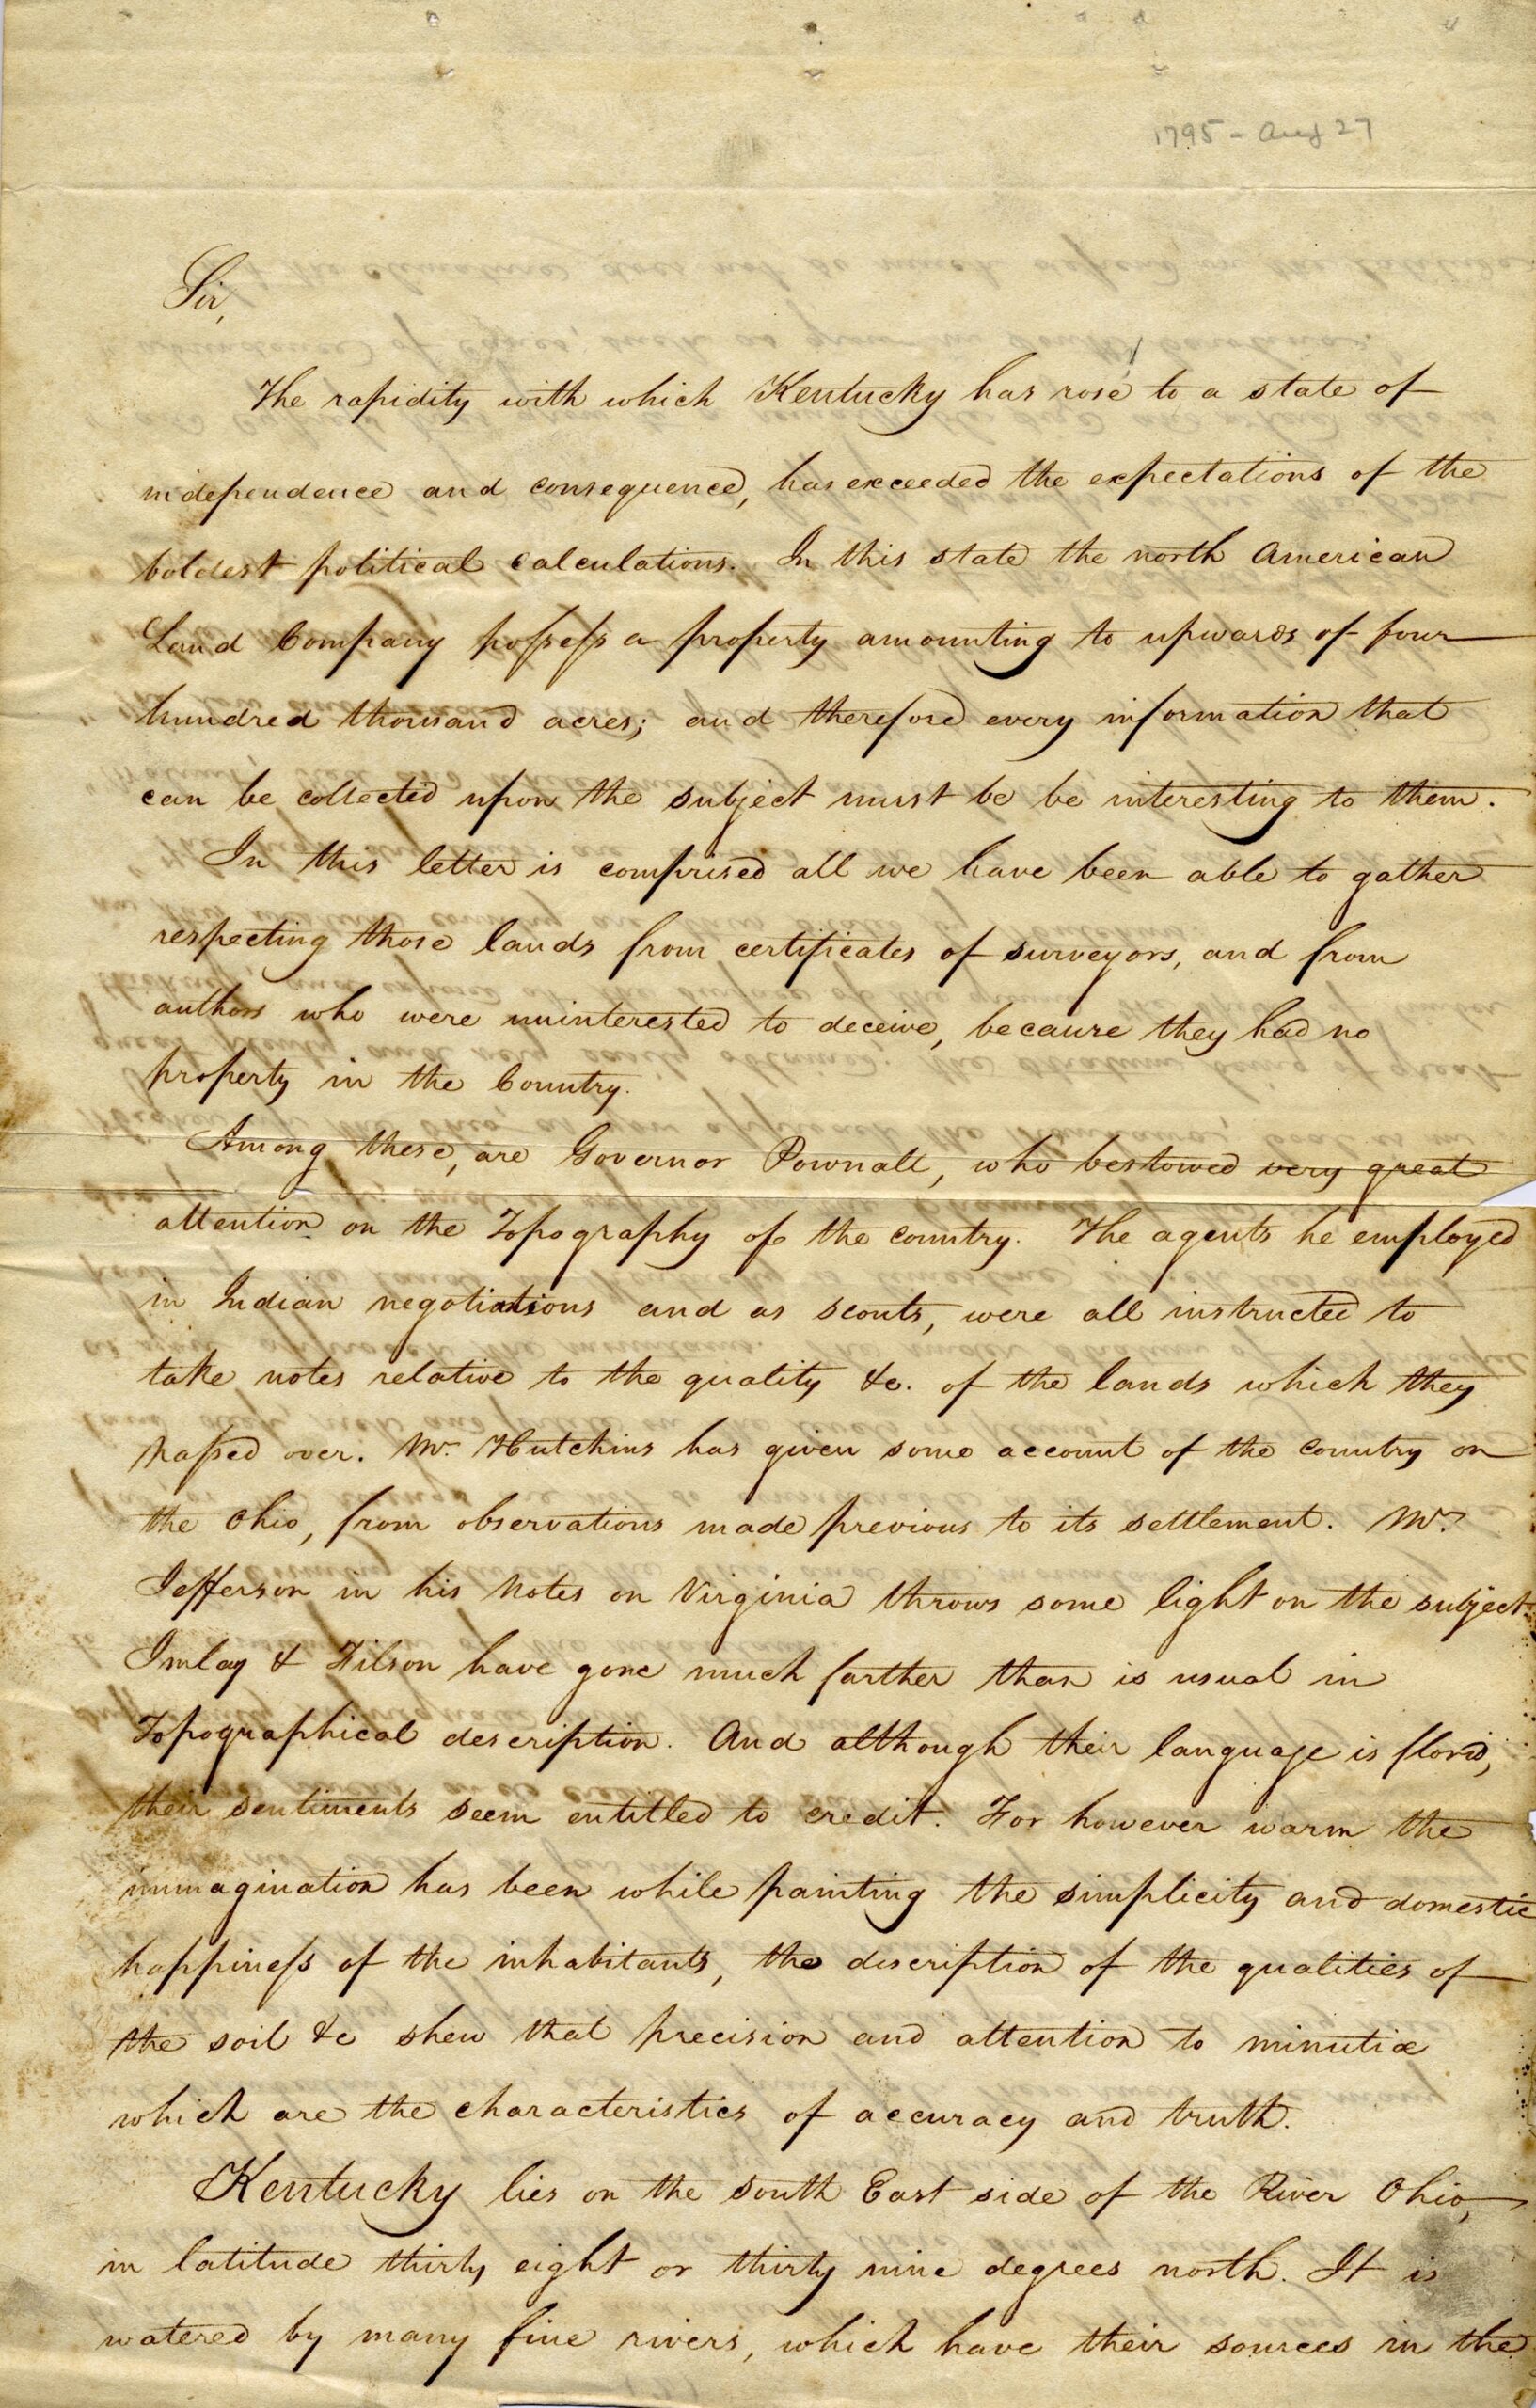 1795 - Aug 27
Sir,
The rapidity with which Kentucky has rose to a state of
independence and consequence, has exceeded the expectations of the
boldest political calculations. In this state the north American
Land Company possess a property amounting to upwards of four
hundred thousand acres; and therefore every information that
can be collected upon the subject must be be interesting to them.
In this letter is comprised all we have been able to gather
respecting those lands from certificates of surveyors, and from
authors who were uninterested to deceive, because they had no
property in the Country.
Among these, are Governor Pownall, who bestowed very great
attention on the Topography of the country. The agents he employed
in Indian negotiations and as scouts, were all instructed to
take notes relative to the quality &c. of the lands which they
passed over. Mr. Hutchins has given some account of the country on
the Ohio, from observations made previous to its settlement. Mr.
Jefferson in his Notes on Virginia throws some light on the subject.
Imlay & Filson have gone much farther than is usual in
Topographical description. And although their language is florid,
their sentiments seem entitled to credit. For however warm the
immagination has been while painting the simplicity and domestic
happiness of the inhabitants, the description of the qualities of
the soil &c shew that precision and attention to minutiæ
which are the characteristics of accuracy and truth.
Kentucky lies on the south East side of the River Ohio,
in latitude thirty eight or thirty nine degrees north. It is
watered by many fine rivers, which have their sources in the